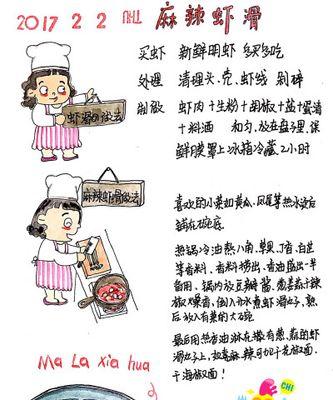 2017 2 2 麻辣虾滑
买虾 新鲜明虾 多多吃
处理 清理头、壳、虾线 剁碎
制做 虾肉十生粉十胡椒十盐十蛋清
十料酒 和匀、放在盘子里、保
鲜膜罩上冰箱冷藏2小时
虾滑的做法
麻辣虾滑做法
喜欢的小菜如黄瓜、凤尾等热水烫后
铺在碗底
热锅冷油熬八角、草果、丁香、白芷
等香料、香料捞出、香油盛出一半
备用、锅内放豆瓣酱、葱姜蒜十辣
椒爆香、倒入水煮虾滑丸子、熟
后放入有菜的大碗
最后用热香油淋在撒有葱、蒜的虾
滑丸子上、如喜麻、辣可加干花椒面、
干海椒面！
Ma La xia hua
CHI